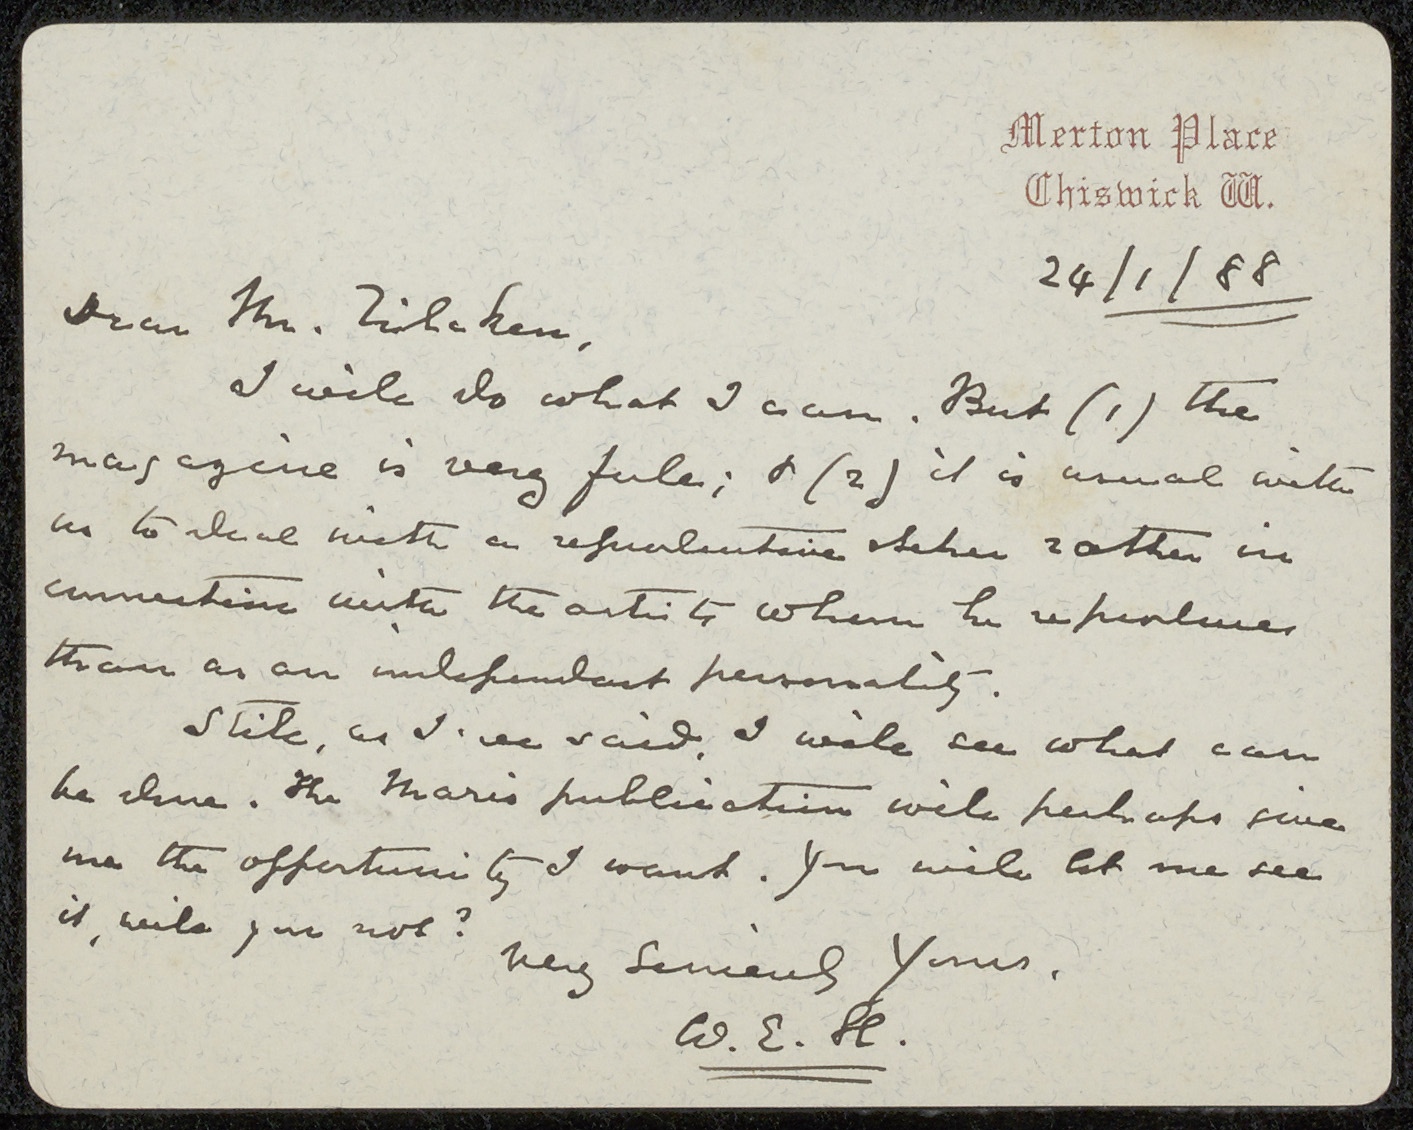 Merton Place
Chiswick W.
24/1/88
Dear Mr. Zilcken,
I will do what I can. But (1) the
magazine is very full; & (2) it is usual with
us to deal with a reproductive etcher rather in
connection with the artists whom he reproduces
than as an independent personality.
Still, as I've said, I will see what can
be done. The Maris publication will perhaps give
me the opportunity I want. You will let me see
it, will you not?
Very Sincerely Yours,
W. E. H.